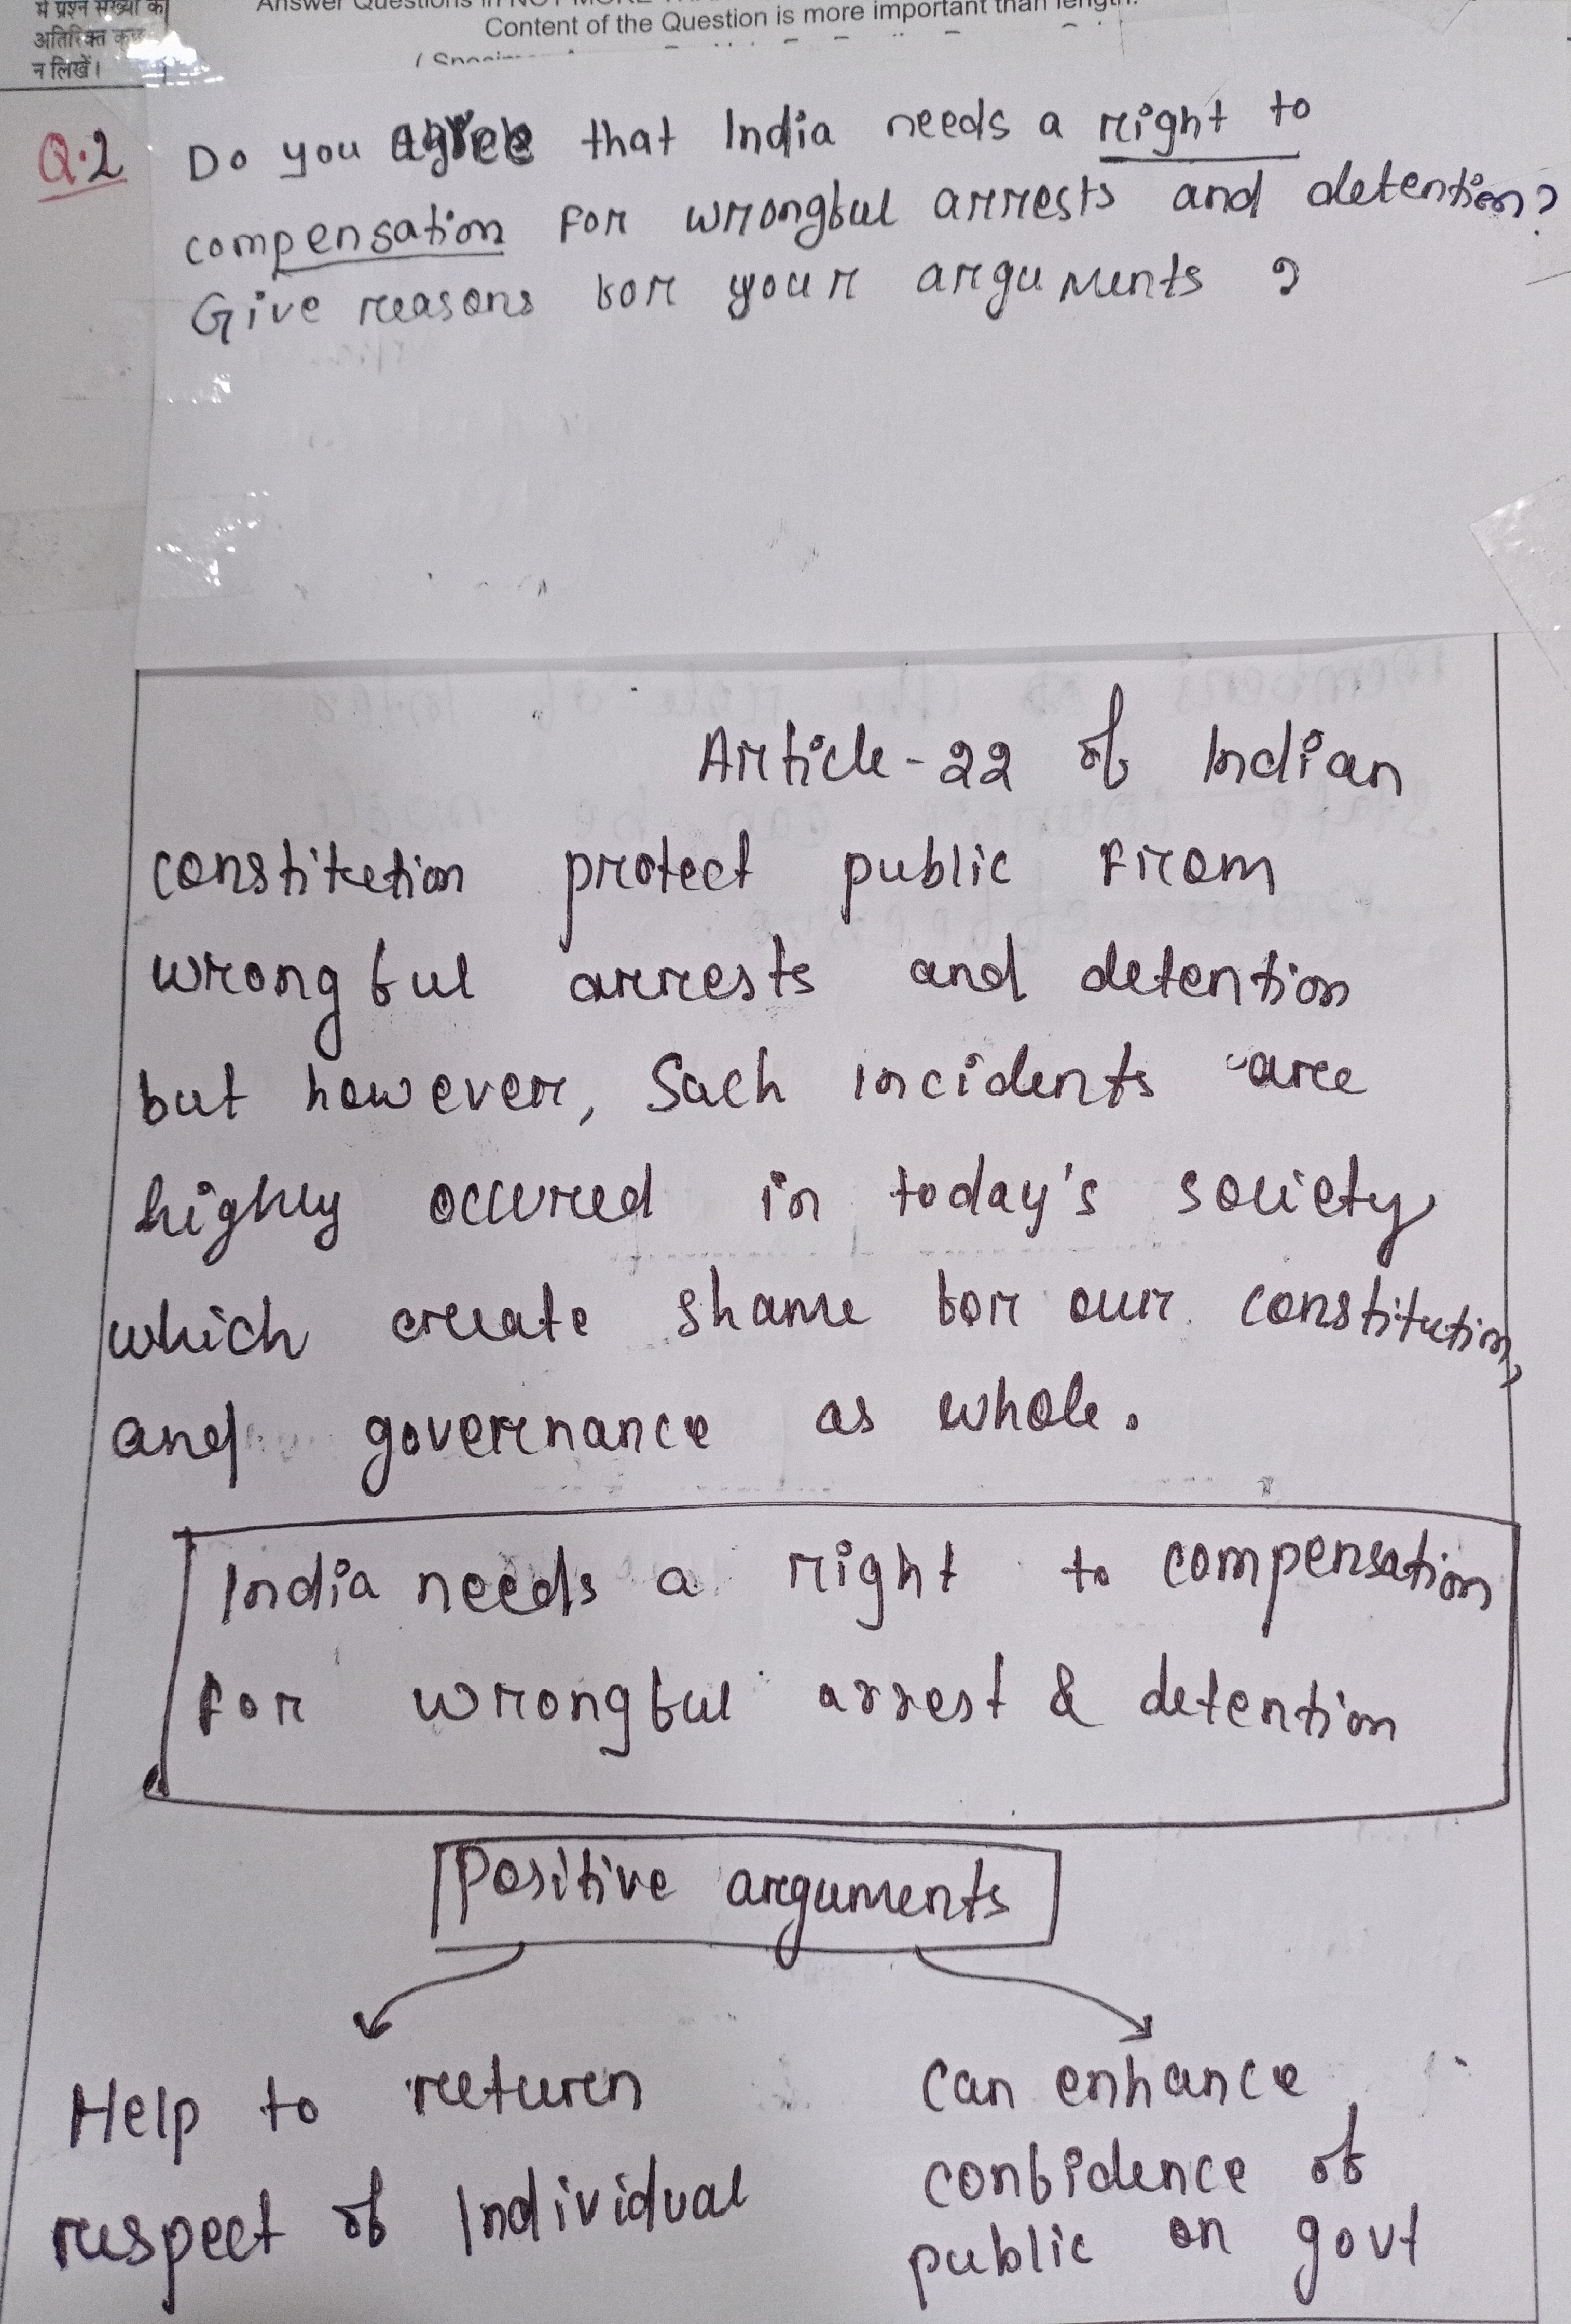 में प्रश्न संख्या के
अतिरिक्त कुछ
न लिखें।
Answer Questions in NOT MORE
Content of the Question is more important than length.
Q.2 Do you agree that India needs a right to
compensation for wrongful arrests and detention?
Give reasons for your arguments ?
Article-22 of Indian
constitution protect public from
wrongful arrests and detention
but however, Such incidents are
highly occured in today's society
which create shame for our constitution,
and governance as whole.
India needs a right to compensation
for wrongful arrest & detention
Positive arguments
Help to return
respect of Individual
can enhance
confidence of
public on govt